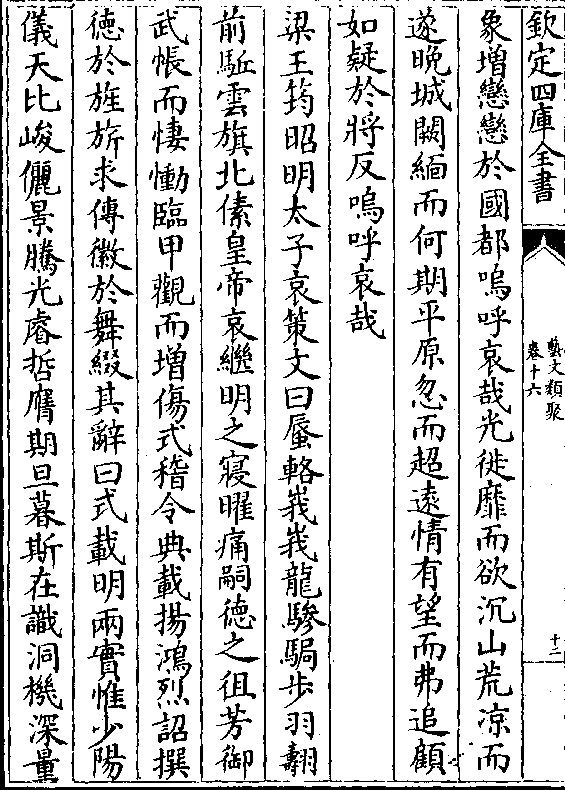 欽定四庫全書
藝文類聚
卷十六
十二
象增戀戀於國都嗚呼哀哉光徙靡而欲沉山荒凉而
遂晚城闕緬而何期平原忽而超遠情有望而弗追顧
如疑於將反嗚呼哀哉
梁王筠昭明太子哀策文曰蜃輅峩峩龍驂跼步羽翿
前駈雲旗北傃皇帝哀繼明之寢曜痛嗣德之徂芳御
武帳而悽慟臨甲觀而增傷式稽令典載揚鴻烈詔撰
德於旌旂求傳徽於舞綴其辭曰式載明兩實惟少陽
儀天比峻儷景騰光睿哲膺期旦暮斯在識洞機深量